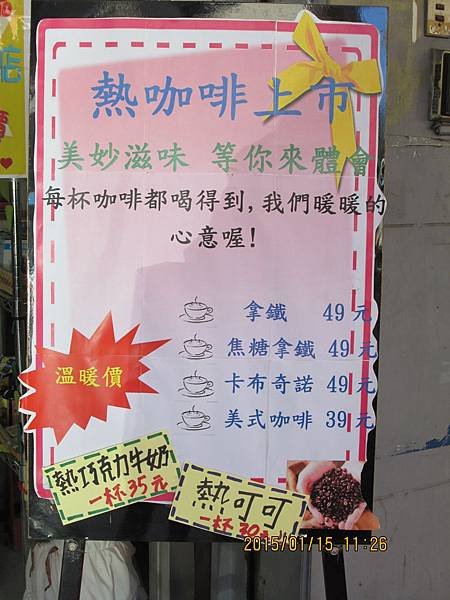 熱咖啡上市
美妙滋味 等你來體會
每杯咖啡都喝得到,我們暖暖的
心意喔!
拿鐵 49元
焦糖拿鐵 49元
卡布奇諾 49元
美式咖啡 39元
溫暖價
熱巧克力牛奶
一杯35元
熱可可
一杯30
2015/01/15 11:26